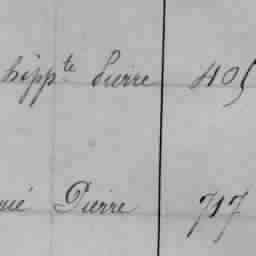 hippte Pierre 405
né Pierre 717